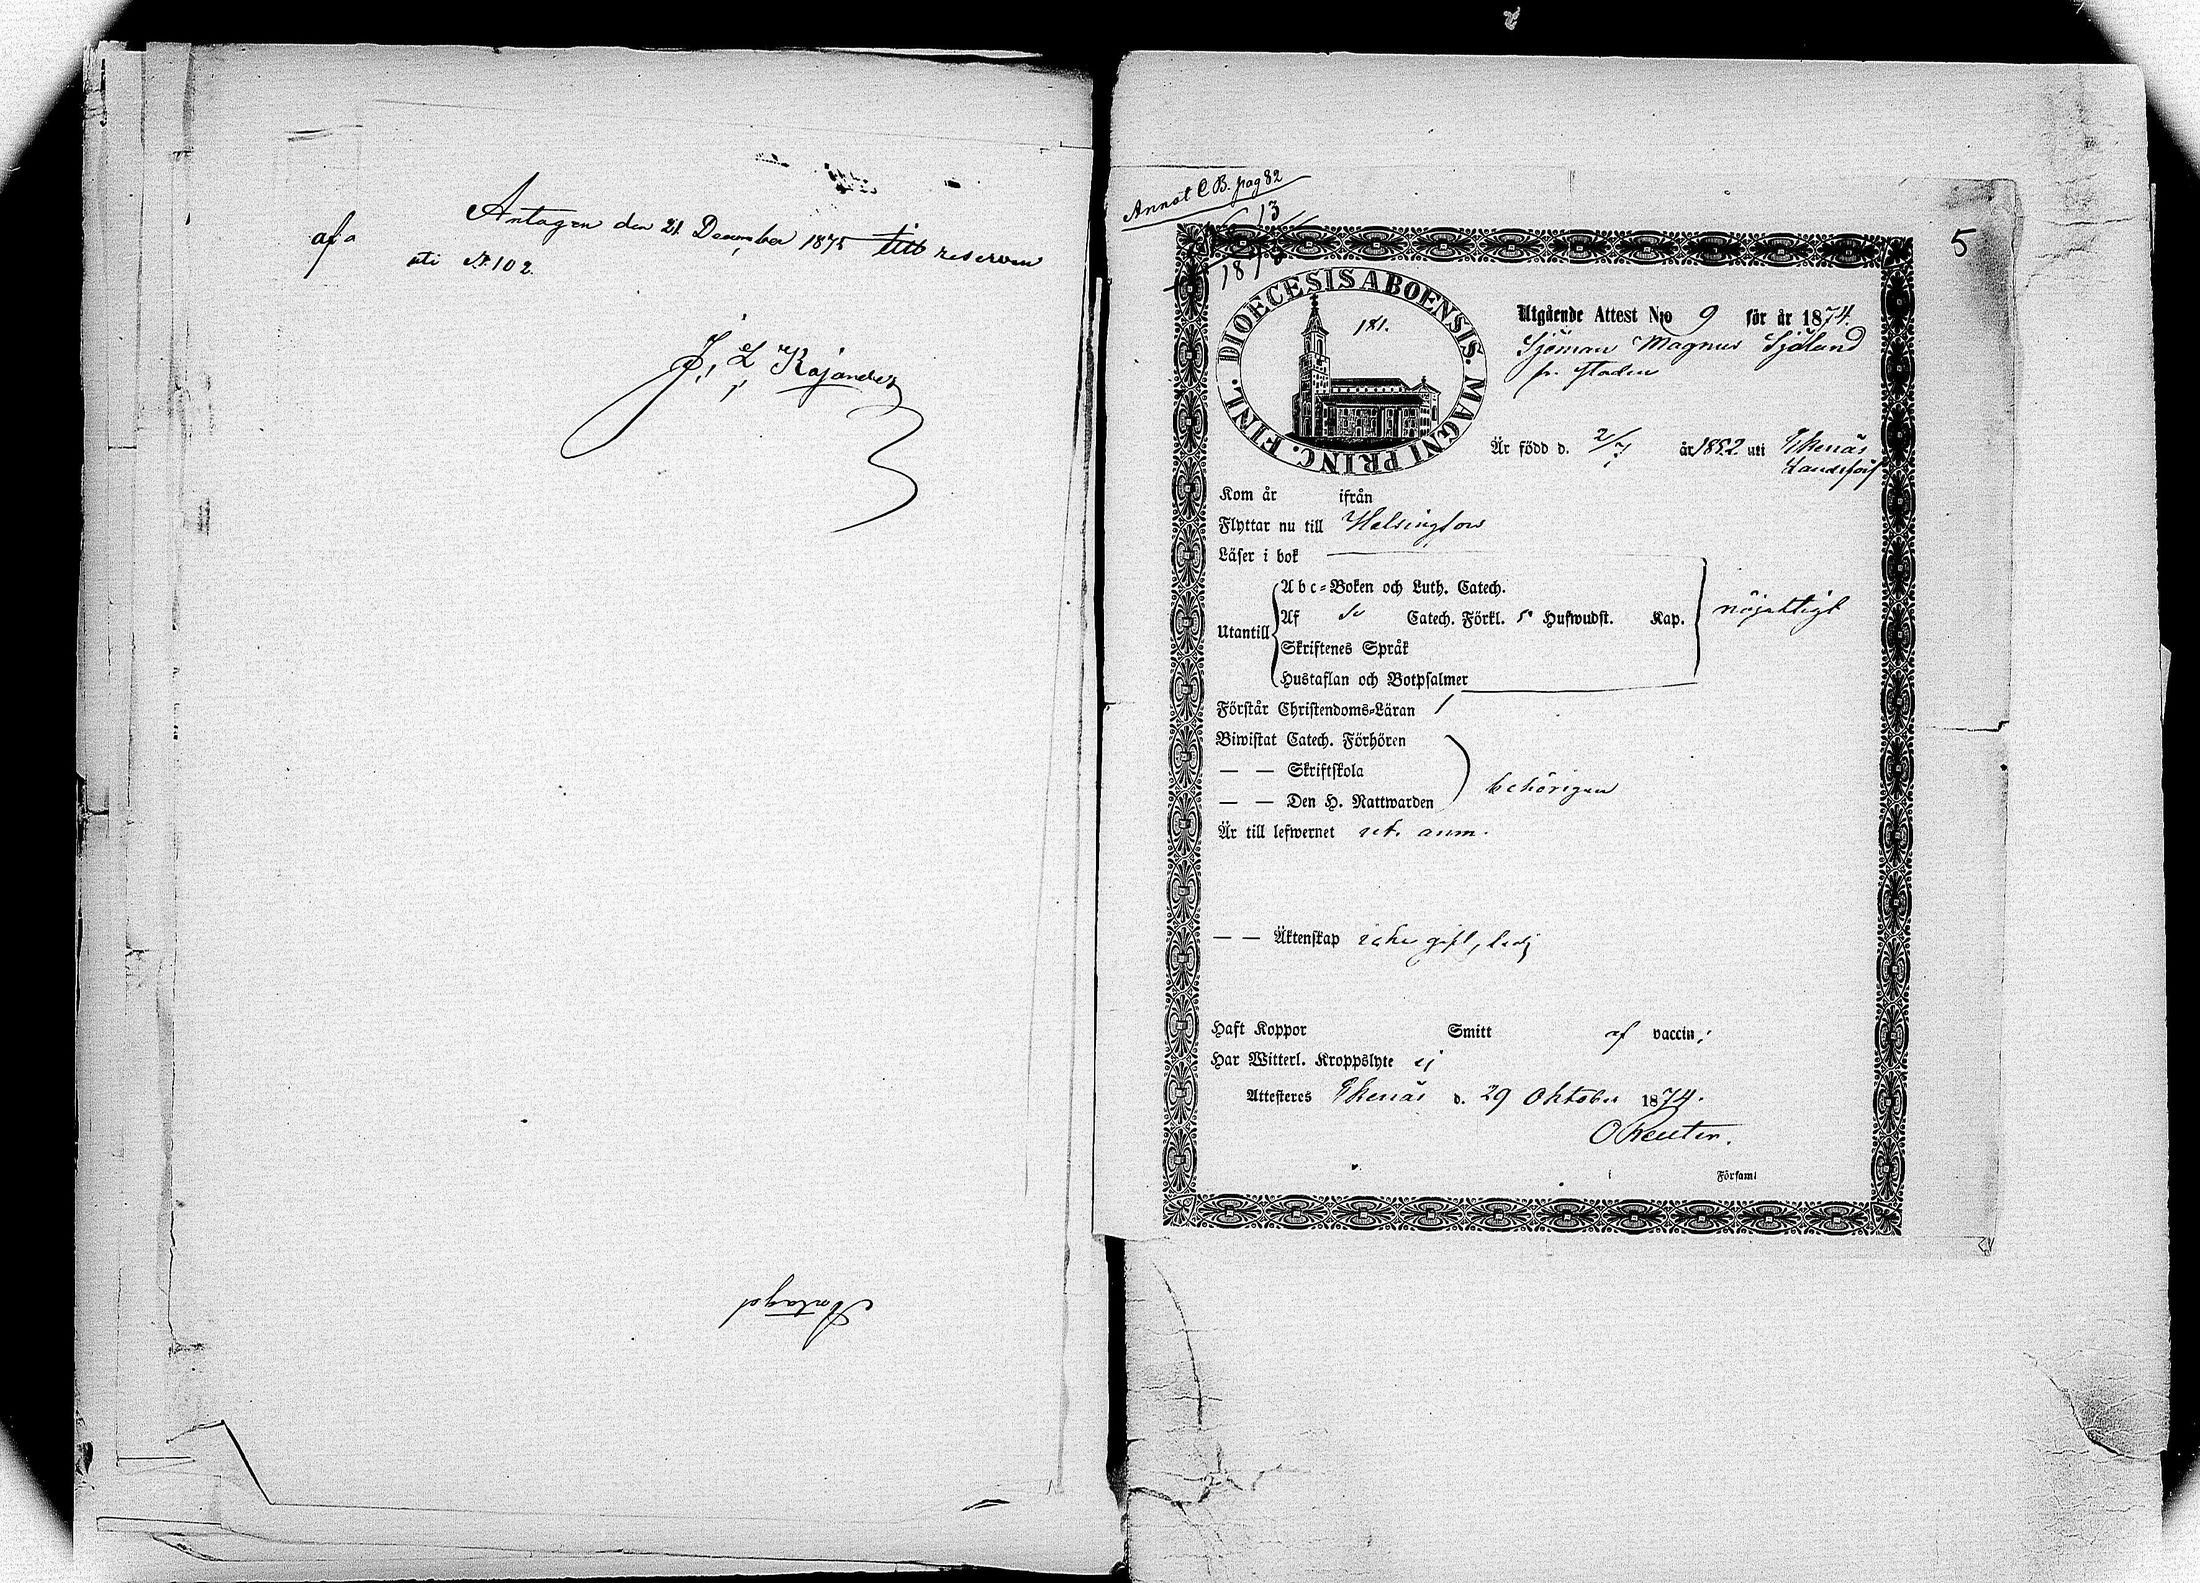 Antagen den 21 December 1875 till reserven
af a
uti No 102.
J. L. Kajander
Antaged
Annot C B. pag 82
13
18
5
DIOECESIS ABOENSIS. MAGNI PRINC. FINL.
181.
Utgående Attest N:o 9 för år 1874.
Sjöman Magnus Sjölund
fr. staden
Är född d. 2/7 år 1852 uti Ekenäs
Landsförs
Kom år ifrån
Flyttar nu till Helsingfors
Läser i bok
Abc-Boken och Luth. Catech.
Utantill
Af Catech. Förkl. 5 Hufwudst. Kap.
nöjaktigt
Skriftenes Språk
Hustaflan och Botpsalmer
Förstår Christendoms-Läran
Biwistat Catech. Förhören
— — Skriftskola
behörigen
— — Den H. Nattwarden
Är till lefwernet ut. anm.
— — Äktenskap icke gift, ledig
Haft Koppor Smitt af vaccin;
Har Witterl. Kroppslyte ej
Attesteres Ekenäs d. 29 Oktober 1874.
O Reuter.
Församl